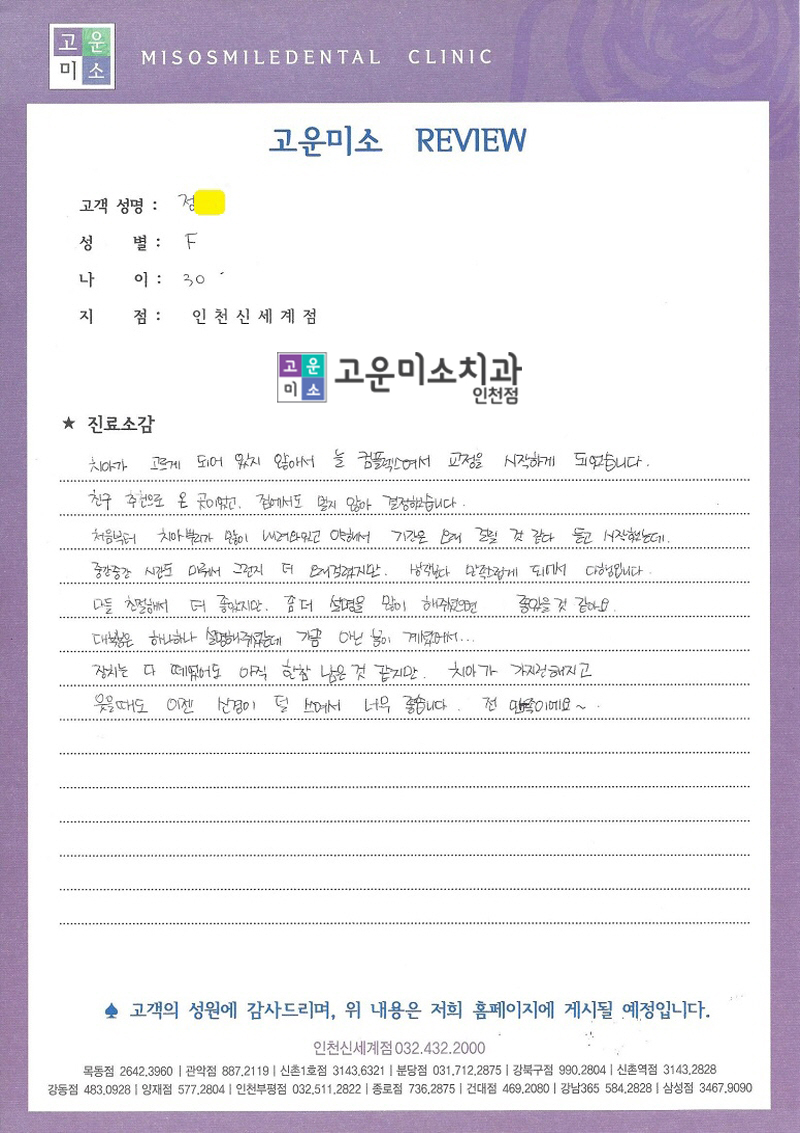 고운
미소
MISOSMILEDENTAL CLINIC
고운미소 REVIEW
고객 성명 : 정
성 별 : F
나 이 : 30
지 점 : 인천신세계점
고운
미소
고운미소치과
인천점
★ 진료소감
치아가 고르게 되어 있지 않아서 늘 컴플렉스여서 교정을 시작하게 되었습니다.
친구 추천으로 온 곳이었고, 집에서도 멀지 않아 결정했습니다.
처음부터 치아뿌리가 많이 내려와있고 약해서 기간은 오래 걸릴 것 같다 듣고 시작했는데.
중간중간 시간도 미뤄서 그런지 더 오래걸렸지만. 생각보다 만족스럽게 되어서 다행입니다.
다들 친절해서 더 좋았지만. 좀 더 설명을 많이 해주셨으면 좋았을 것 같아요.
대부분은 하나하나 설명해주셨는데 가끔 아닌 분이 계셨어서...
장치는 다 떼었어도 아직 한참 남은 것 같지만. 치아가 가지런해지고
웃을때도 이젠 신경이 덜 쓰여서 너무 좋습니다. 전 만족이에요~.
♠ 고객의 성원에 감사드리며, 위 내용은 저희 홈페이지에 게시될 예정입니다.
인천신세계점 032.432.2000
목동점 2642.3960 | 관악점 887.2119 | 신촌1호점 3143.6321 | 분당점 031.712.2875 | 강북구점 990.2804 | 신촌역점 3143.2828
강동점 483.0928 | 양재점 577.2804 | 인천부평점 032.511.2822 | 종로점 736.2875 | 건대점 469.2080 | 강남365 584.2828 | 삼성점 3467.9090